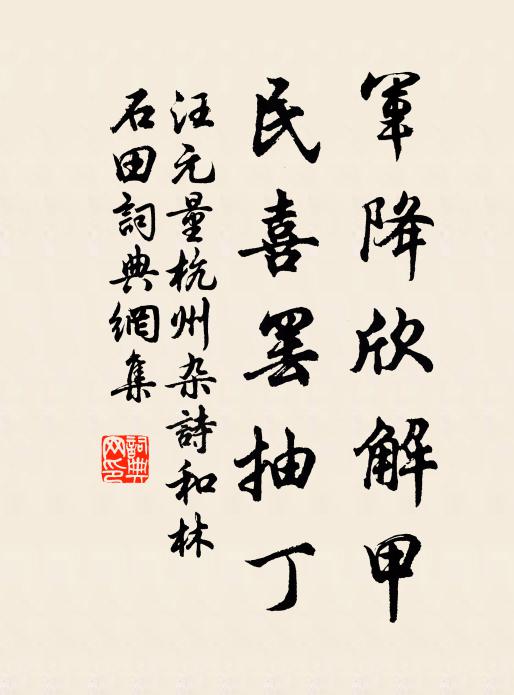 軍降欣解甲
民喜罢抽丁
汪元量杭州杂詩和林
石田詞典網集
詞典
网印